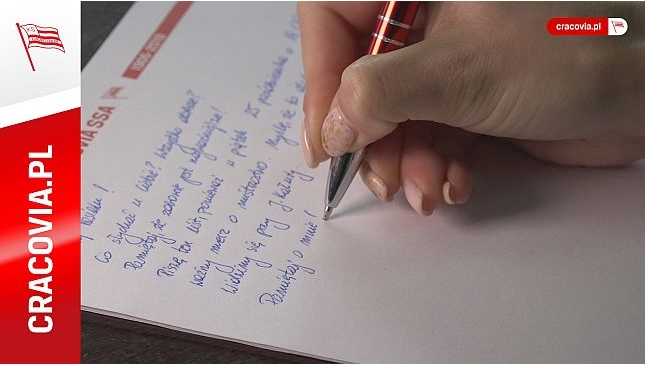 CRACOVIA.PL
cracovia.pl
VIA SSA
Co słychać u Ciebie? Wszystko dobrze?
Pamiętaj, że zdrowie jest najważniejsze!
Piszę ten list, ponieważ w piątek 25 października o
ważny mecz o mistrzostwo. Myślę, że to
Widzimy się przy Kałuży
Pamiętaj o mnie!